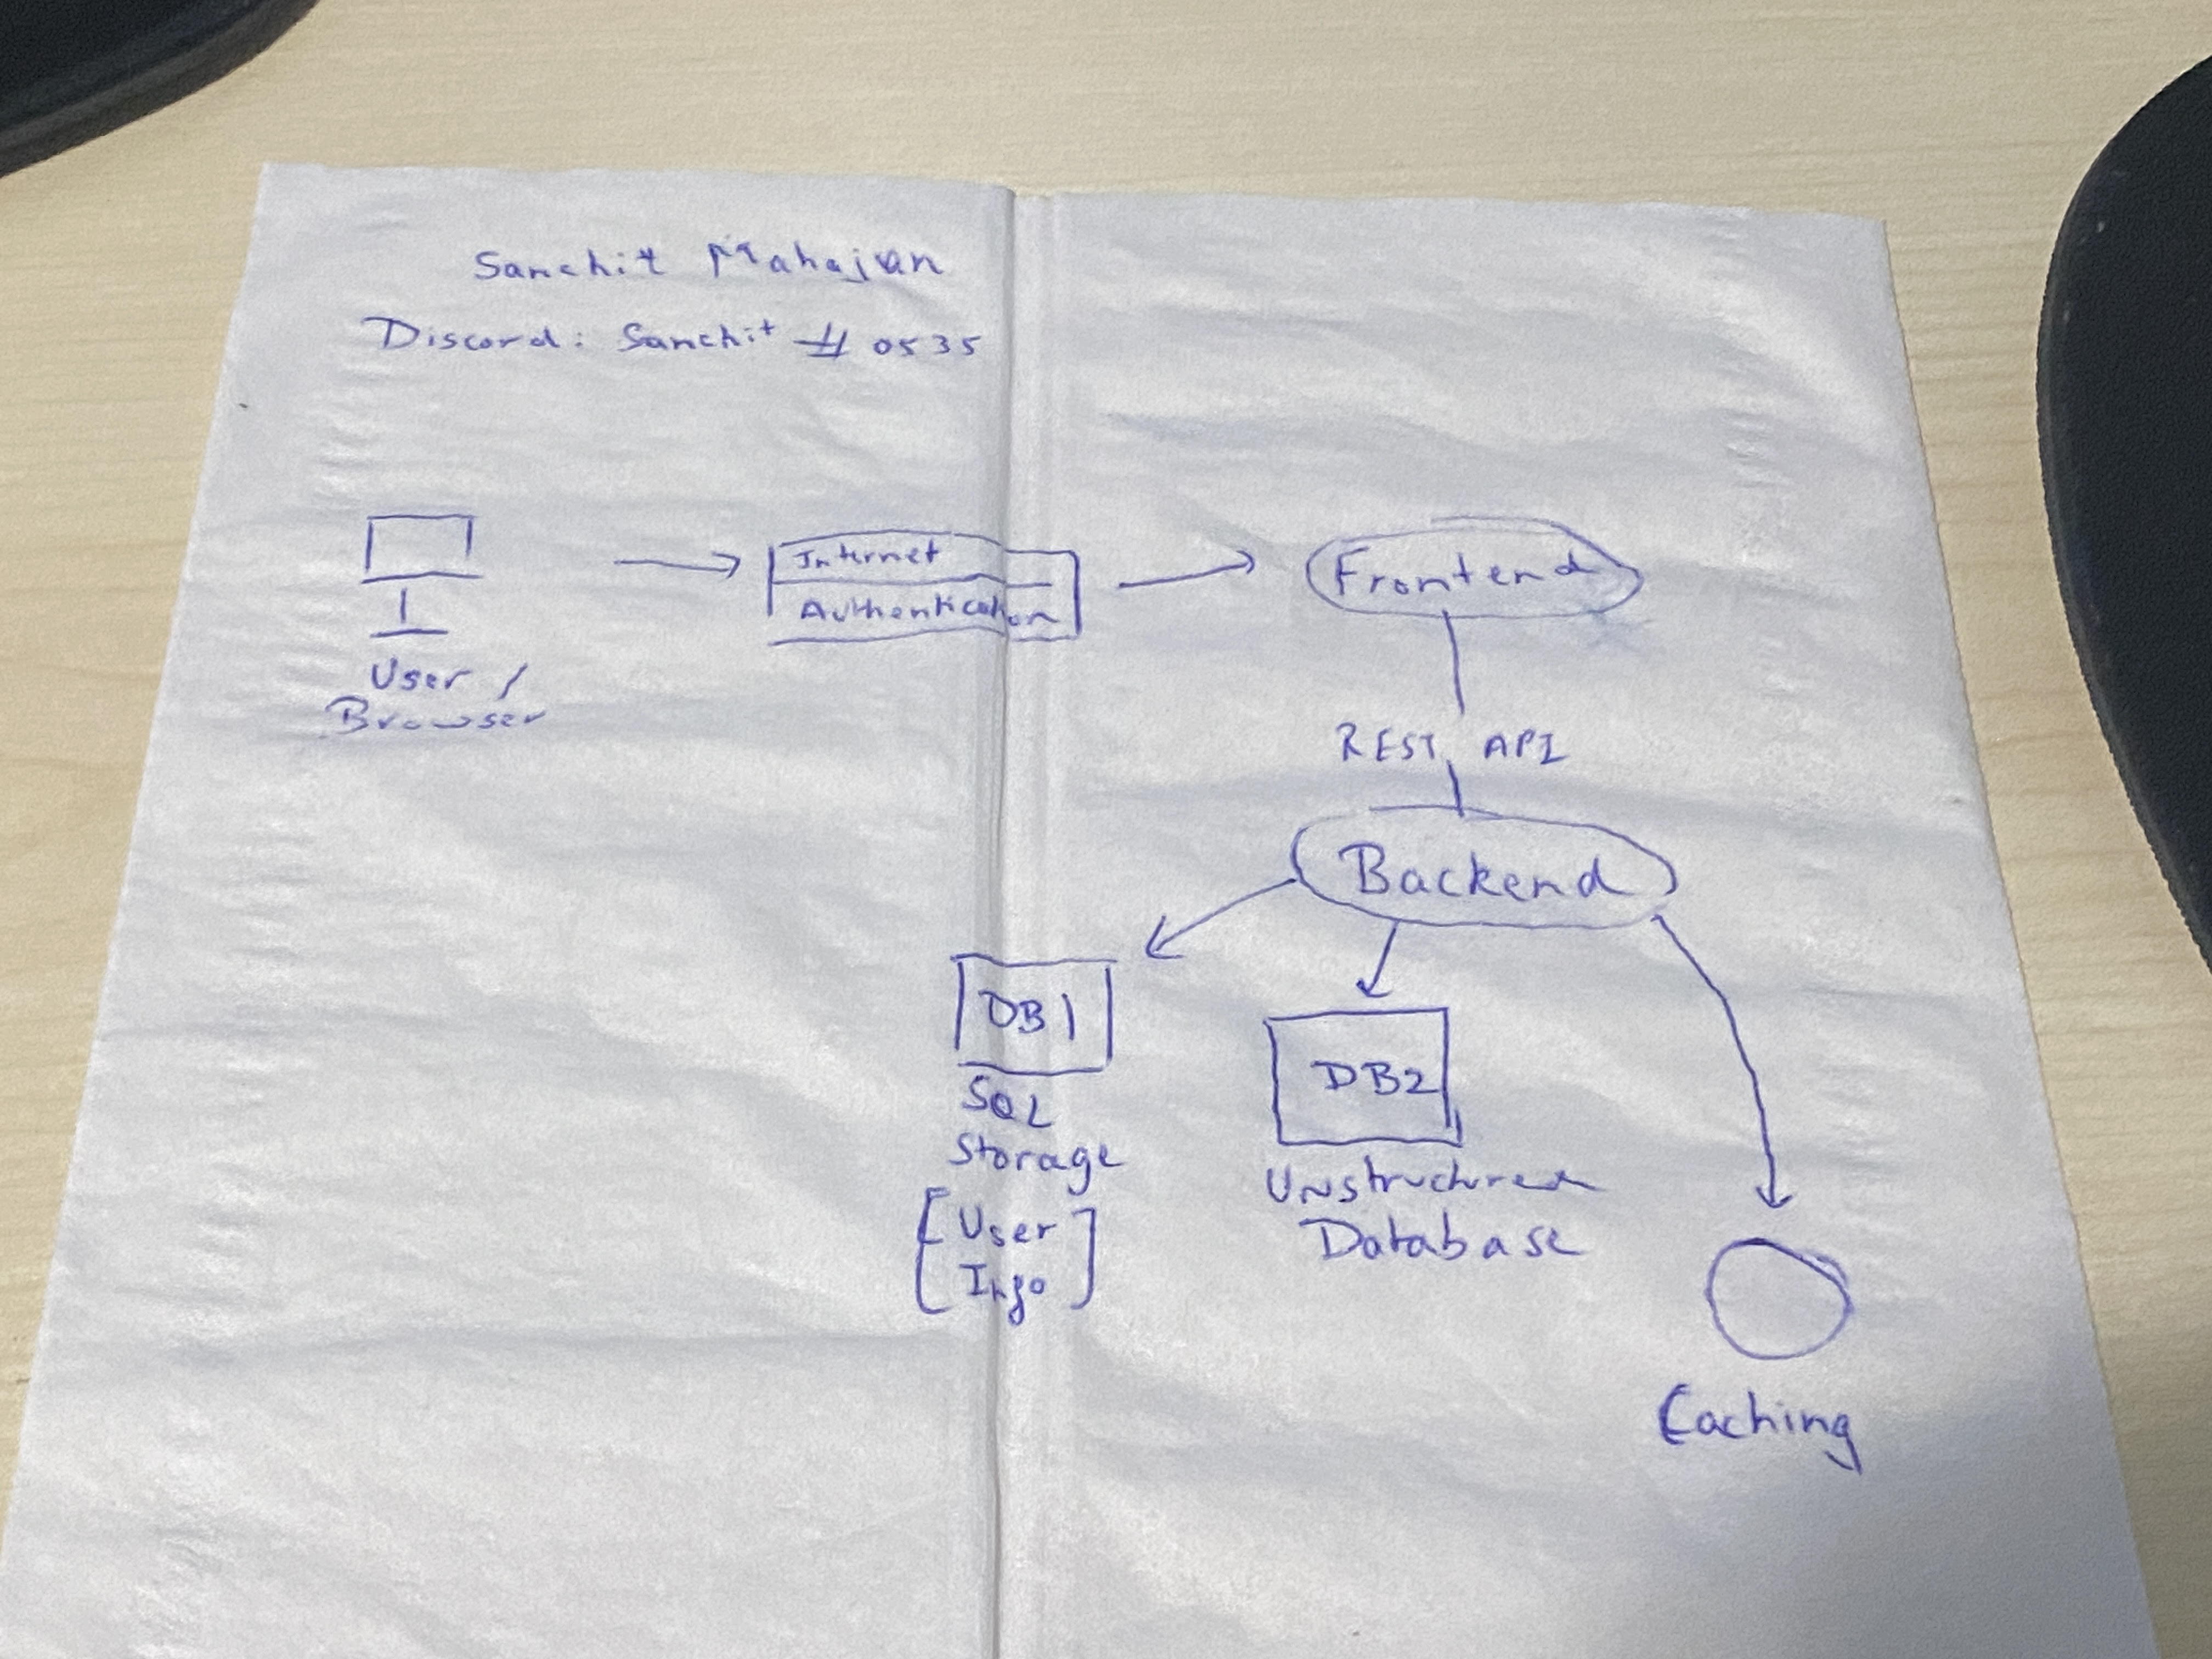 Sanchit Mahajan
Discord: Sanchit # 0535
Internet
Authentication
Frontend
User /
Browser
REST API
Backend
DB1
SQL
Storage
[User
Info]
DB2
Unstructured
Database
Caching